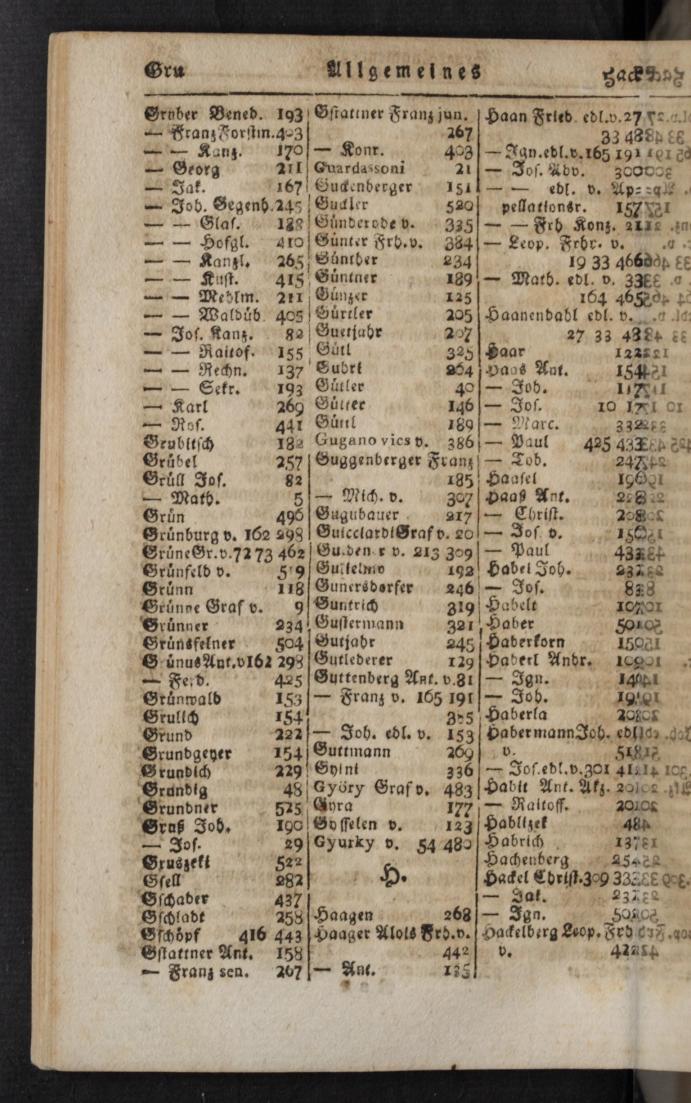 Gru Allgemeines
Gruber Bened. 193
— Franz Forstm. 403
— — Kanz. 170
— Georg 211
— Jak. 167
— Joh. Gegenh. 245
— — Glas. 188
— — Hofgl. 410
— — Kanzl. 265
— — Kust. 415
— — Mehlm. 211
— — Waldüb. 405
— Jos. Kanz. 82
— — Raitof. 155
— — Rechn. 137
— — Sekr. 193
— Karl 269
— Ros. 441
Grubitsch 182
Grübel 257
Grüll Jos. 82
— Math. 5
Grün 496
Grünburg v. 162 298
Grüne Gr. v. 72 73 462
Grünfeld v. 519
Grünn 118
Grünne Graf v. 9
Grünner 234
Grünsfelner 504
Grünus Ant. v 162 298
— Ferd. 425
Grünwald 153
Grullch 154
Grund 222
Grundgeyer 154
Grundich 229
Grundig 48
Grundner 525
Gruß Joh. 190
— Jos. 29
Gruszeki 522
Gsell 282
Gschader 437
Gschladt 258
Gschöpf 416 443
Gstattner Ant. 158
— Franz sen. 267
Gstattner Franz jun.
267
— Konr. 403
Guardassoni 21
Guckenberger 151
Guckler 520
Günderode v. 335
Günter Frh. v. 384
Günther 234
Güntner 189
Günzer 125
Gürtler 205
Guetjahr 207
Gütl 325
Gubrt 264
Gütler 40
Gütter 146
Güttl 189
Gugano vics v. 386
Guggenberger Franz
185
— Mich. v. 307
Gugubauer 217
Guicciardi Graf v. 20
Guldener v. 213 309
Gulielmo 192
Gunersdorfer 246
Guntrich 319
Gustermann 321
Gutjahr 245
Gutlederer 129
Guttenberg Ant. v. 81
— Franz v. 165 191
385
— Joh. edl. v. 153
Guttmann 269
Gyini 336
Györy Graf v. 483
Gyra 177
Gysselen v. 123
Gyurky v. 54 480
H.
Haagen 268
Haager Alois Frh. v.
442
— Ant. 135
Haan Fried. edl. v. 27
33 48
— Ign. edl. v. 165 191
— Jos. Adv. 300
— — edl. v. Ap=
pellationsr. 157
— — Frh Konz. 21
— Leop. Frhr. v.
19 33 466
— Math. edl. v. 33
164 465
Haanendahl edl. v.
27 33 48
Haar 122
Haas Ant. 154
— Joh. 117
— Jos. 10 171
— Marc. 332
— Paul 425 433
— Tob. 247
Haasel 196
Haaß Ant.
— Christ. 208
— Jos. v. 150
— Paul 43
Habel Joh. 23
— Jos. 8
Habelt 107
Haber 501
Haberkorn 150
Haberl Andr.
— Ign.
— Joh.
Haberla
Habermann Joh. edl
v. 518
— Jos. edl. v. 301 412
Habit Ant. Akz. 201
— Raitoff. 201
Hablizek 48
Habrich 137
Hachenberg 254
Hackel Christ. 309 333
— Jak. 23
— Ign. 50
Hackelberg Leop. Frh
v. 422